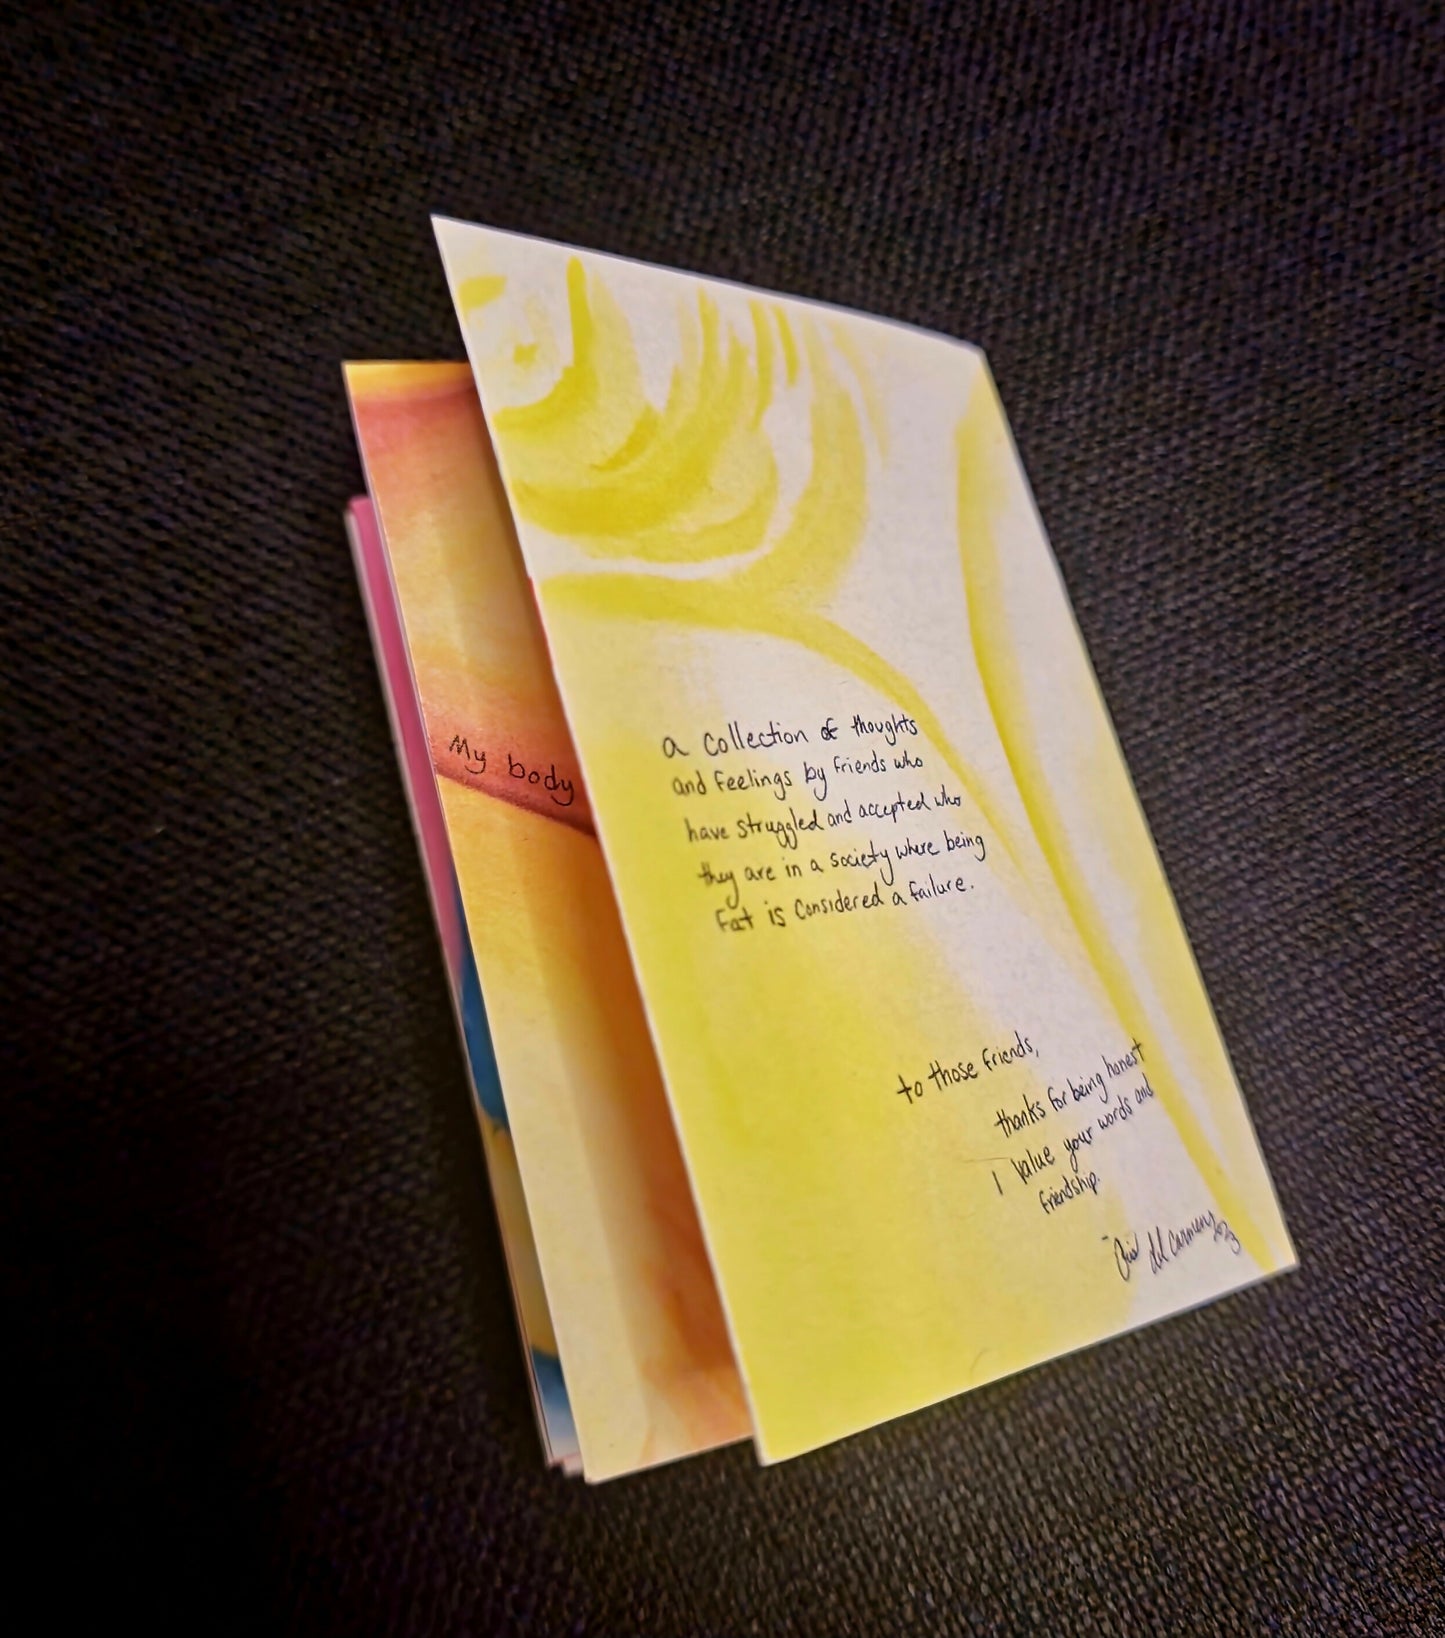 My body
a collection of thoughts
and feelings by friends who
have struggled and accepted who
they are in a society where being
fat is considered a failure.
to those friends,
thanks for being honest
I value your words and
friendship.
del Carmen